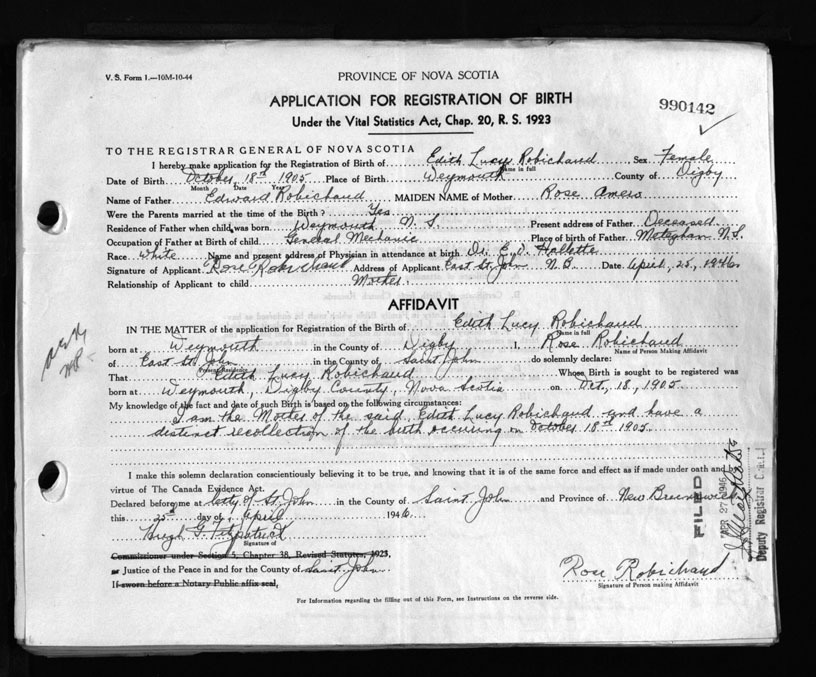 V. S. Form 1.—10M-10-44
PROVINCE OF NOVA SCOTIA
APPLICATION FOR REGISTRATION OF BIRTH
990142
Under the Vital Statistics Act, Chap. 20, R. S. 1923
TO THE REGISTRAR GENERAL OF NOVA SCOTIA
I hereby make application for the Registration of Birth of Edith Lucy Robichaud Sex Female
Name in full
Date of Birth October 18th 1905 Place of Birth Weymouth County of Digby
Month Date Year
Name of Father Edward Robichaud MAIDEN NAME of Mother Rose
Were the Parents married at the time of the Birth? Yes
Residence of Father when child was born Weymouth N. S. Present address of Father Deceased
Occupation of Father at Birth of child General Mechanic Place of birth of Father Meteghan N.S.
Race White Name and present address of Physician in attendance at birth Dr. E. D. Hallette
Signature of Applicant Rose Robichaud Address of Applicant East St. John N. B. Date April, 25, 1946
Relationship of Applicant to child Mother
AFFIDAVIT
IN THE MATTER of the application for Registration of the Birth of Edith Lucy Robichaud
Name in full
born at Weymouth in the County of Digby I, Rose Robichaud
Name of Person Making Affidavit
of East St. John in the County of Saint John do solemnly declare:
That Edith Lucy Robichaud Whose Birth is sought to be registered was
born at Weymouth, Digby County, Nova Scotia on Oct, 18, 1905
My knowledge of the fact and date of such Birth is based on the following circumstances:
I am the Mother of the said Edith Lucy Robichaud and have a
distinct recollection of the birth occuring on October 18th 1905.
I make this solemn declaration conscientiously believing it to be true, and knowing that it is of the same force and effect as if made under oath and
virtue of The Canada Evidence Act.
Declared before me at City of St. John in the County of Saint John and Province of New Brunswick
this 25 day of April 1946
Hugh G. Fitzpatrick
Signature of
Commissioner under Section 5, Chapter 38, Revised Statutes, 1923,
or Justice of the Peace in and for the County of Saint John
If sworn before a Notary Public affix seal,
Rose Robichaud
Signature of Person making Affidavit
For Information regarding the filling out of this Form, see Instructions on the reverse side.
FILED
APR 27 1946
Deputy Registrar